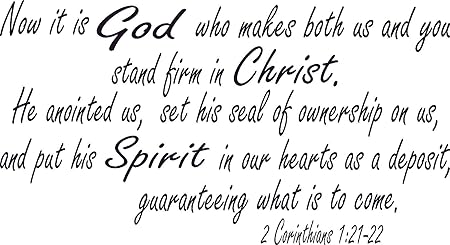 Now it is God who makes both us and you
stand firm in Christ.
He anointed us, set his seal of ownership on us,
and put his Spirit in our hearts as a deposit,
guaranteeing what is to come.
2 Corinthians 1:21-22